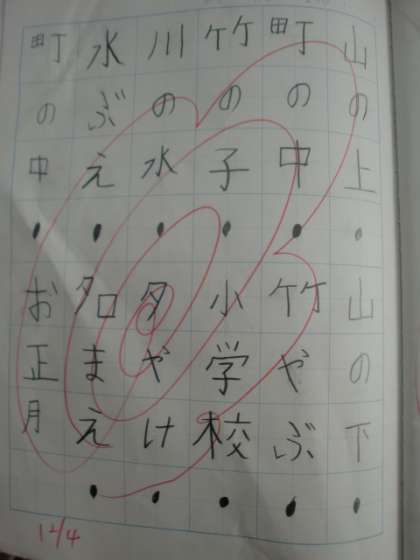 山の上・山の下・
町の中・竹やぶ・
竹の子・小学校・
川の水・夕やけ・
水ぶえ・名まえ・
町の中・お正月
12/4